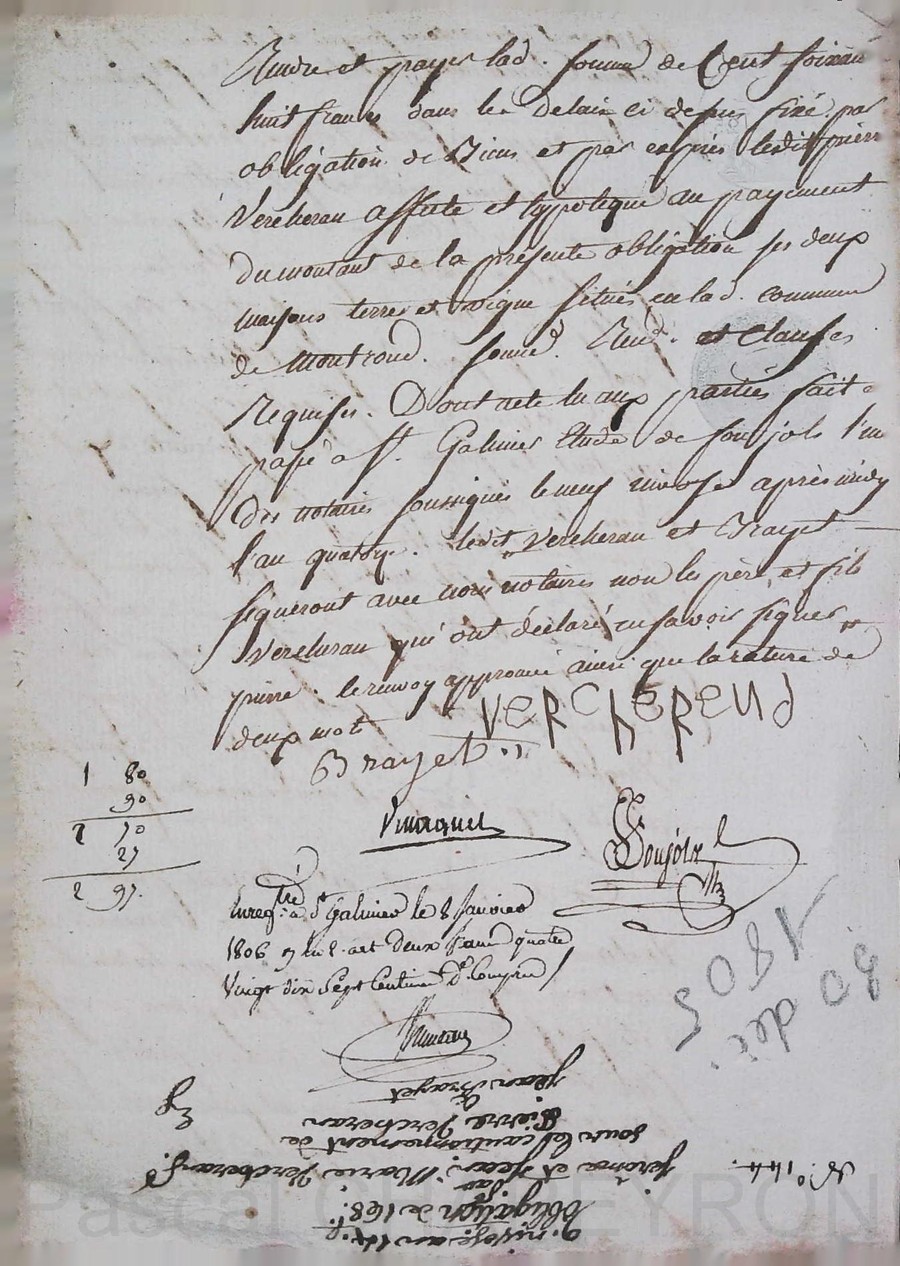 Rendre et payer lad. somme de Cent soixante
huit francs dans le Delai ci dessus fixé par
obligation de Biens et par exprès ledit pierre
Vercheran affecte et hypoteque au payement
Du montant de la présente obligation ses deux
maisons terres et vigne situés en lad. commune
de Montrond. soumis. Ren.d. et clauses
Requises. Dont acte lu aux parties fait et
passé a St. Galmier Etude de soujols l'un
Des notaires soussignés le neuf nivose après midy
l'an quatorze. ledit Vercheran et Brayet
signeront avec nous notaires non les père et fils
Vercheran qui ont déclaré ne savoir signer
pierre. le renvoy approuvé ainsi que la rature de
deux mots
VERCHEREND
Brayet
1 80
90
2 70
27
2 97.
Soujols
Enregtré à St Galmier le 8 Janvier
1806 art deux francs quatre
Vingt dix Sept Centimes Sve Compris
30 dec.
1805
9 nivose an 14
Obligation de 168 f.
par
Jérome et Jean Marie Vercheran
sous le cautionnement de
Pierre Vercheran
&
Jean Brayet
No. 144.
Pascal CHALEYRON